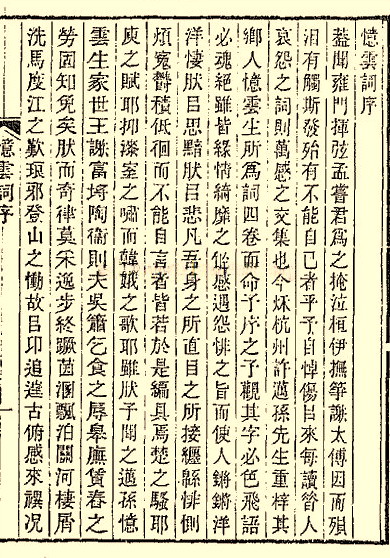 憶雲詞序
葢聞雍門揮弦孟嘗君爲之掩泣桓伊撫箏謝太傅因而殞
泪有觸斯發殆有不能自已者乎予自悼傷㠯來每讀昝人
哀怨之詞則萬感之交集也今秌杭州許邁孫先生重梓其
鄉人憶雲生所爲詞四卷而命予序之予觀其字必色飛語
必魂絕雖皆緣情綺靡之作感遇怨悱之旨而使人鏘鏘洋
洋悽肰㠯思黯肰㠯悲凡吾身之所直目之所接纏緜悱惻
煩冤鬱積低徊而不能自言者皆若於是編具焉楚之騷耶
庾之賦耶抑漆室之嘯而韓娥之歌耶雖肰予聞之邁孫憶
雲生家世王謝富埒陶衞則夫吳簫乞食之辱皋廡賃舂之
勞固知免矣肰而奇律莫采逸步終蹶茵溷飄泊關河棲屑
洗馬度江之歎琅邪登山之慟故㠯卬追遑古俯感來禩况
憶雲詞序
一